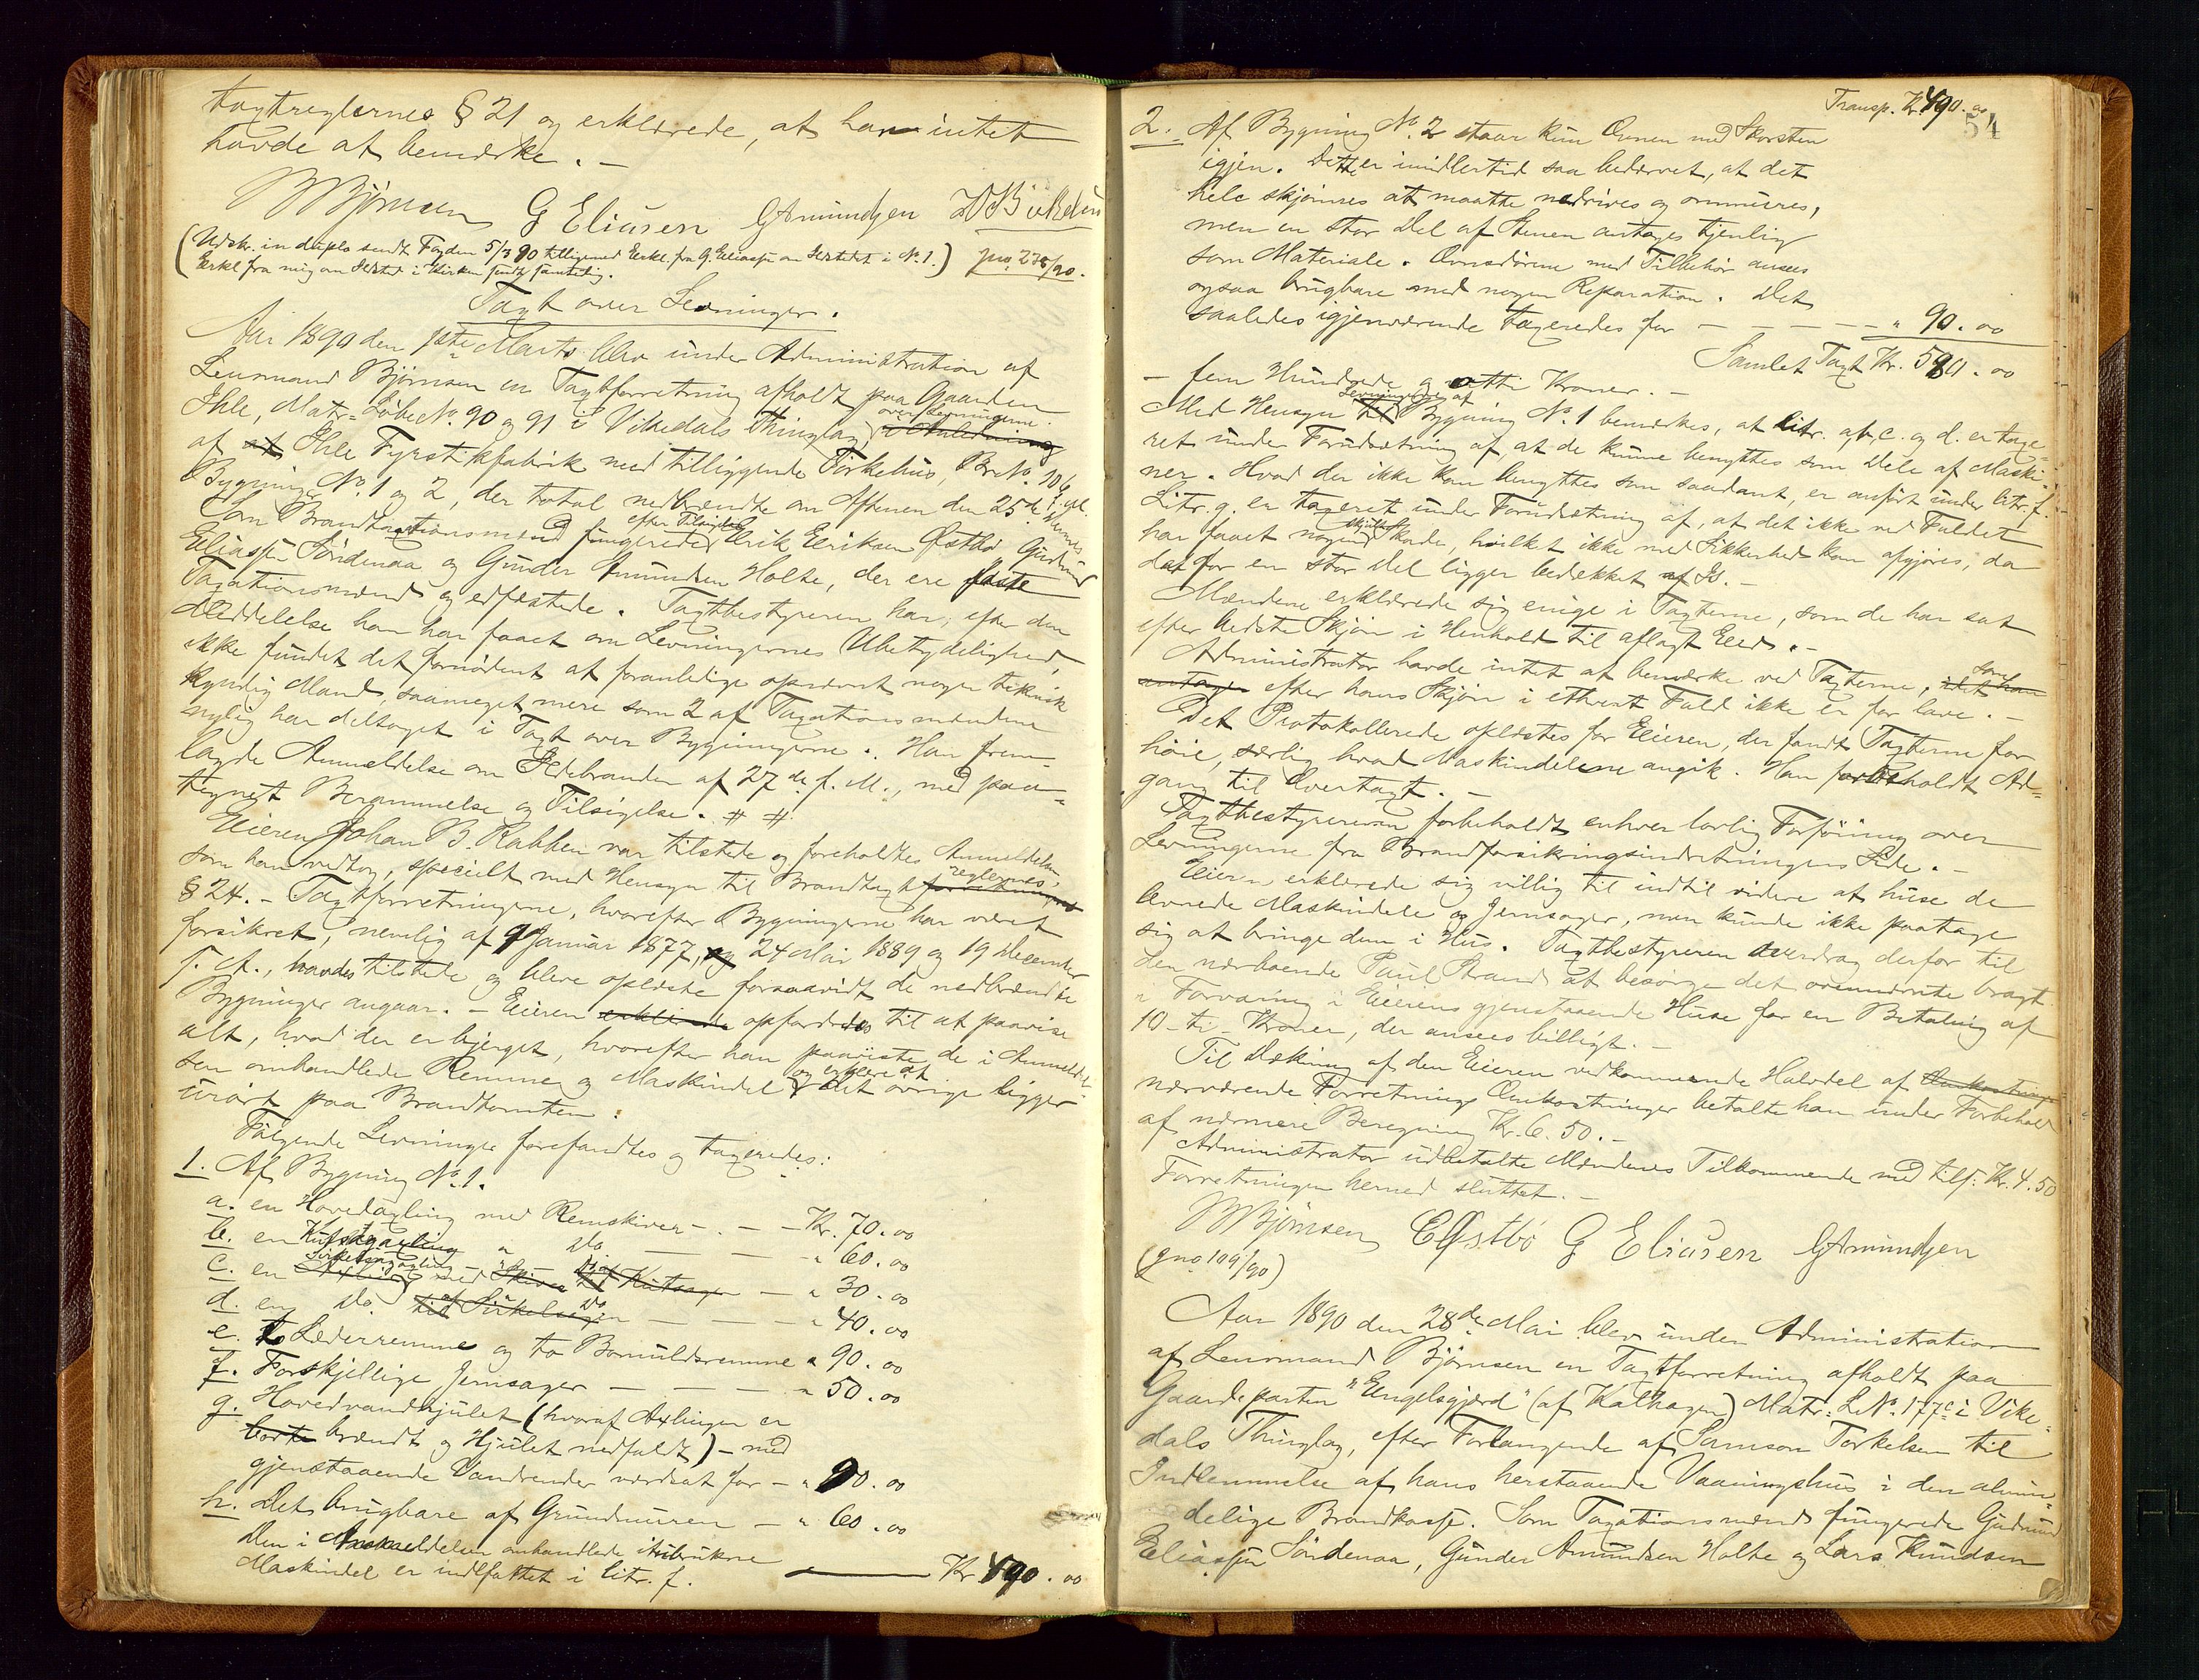 taxtreglernes § 21 og erklærede, at han intet
havde at bemærke. —
BBjörnsen G Eliasen GAmundsen
(Udskr. in duplo sendt Fogden 5/3 90 tilligemed Erkl. fra G. Eliassen om Ildstedet i No. 1.) Jno. 275/90.
Erkl. fra mig om Ildsted i Kirken
Taxt over Levninger.
Aar 1890 den 1ste Marts blev under Administration af
Lensmand Bjørnsen en Taxtforretning afholdt paa Gaarden
Ihle, Matr. Løbe No. 90 og 91 i Vikedals Thinglag, i Anledning
over Levningerne
af at Ihle Fyrstikfabrik med tilliggende Tørkehus, Br. No. 106
Bygninger No. 1 og 2, der total nedbrændte om Aftenen den 25de f.
Som Brandtaxtionsmænd fungerede efter Tilsigelse Erik Eriksen Østbø, Gudmund
Eliassen Søndenaa og Gunder Amundsen Holte, der ere faste
Taxationsmænd og edfæstede. Taxtbestyreren har, efter den
Meddelelse han har faaet om Levningernes Ubetydelighed,
ikke fundet det fornødent at foranledige opnævnt nogen teknisk
kyndig Mand, saameget mere som 2 af Taxationsmændene
nylig har deltaget i Taxt over Bygningerne. Han frem-
lagde Anmeldelse om Ildebranden af 27de f. M., med paa-
tegnet Berammelse og Tilsigelse. # #
Eieren Johan B. Rabben var tilstede og foreholdtes Anmeldelsen,
som han vedtog, specielt med Hensyn til Brandtaxtforretning
reglernes
§ 24. — Taxtforretningerne, hvorefter Bygningerne har været
forsikret, nemlig af 9 Januar 1877, og 24 Mai 1889 og 19 December
s. A., havdes tilstede og bleve oplæste forsaavidt de nedbrændte
Bygninger angaar. — Eieren erklærede opfordredes til at paavise
alt, hvad der er bjerget, hvorefter han paaviste de i Anmeldel-
sen omhandlede Remme og Maskindel og erklærede at det øvrige ligger
urørt paa Brandtomten.
Følgende Levninger forefandtes og taxeredes:
1. Af Bygning No. 1.
a. en Hovedaxling med Remskiver — . — — Kr. 70.00
b. en Kutsagaxling " Do — — — — " 60.00
c. en Axling med Skiver til Kutsagen — " 30.00
Sirkelsagaxling Do
d. en Do. til Sirkelsagen — — — — " 40.00
Do
e. to Læderremme og to Bomuldsremme " 90.00
f. Forskjellige Jernsager — — — — " 50.00
g. Hovedvandhjulet (hvoraf Axlingen er
borte brændt og Hjulet nedfaldt) — med
gjenstaaende Vandrender værdsat for — " 90.00
h. Det brugbare af Grundmuren — " 60.00
Den i Anmeldelsen omhandlede itubrukne
Maskindel er indfattet i litr. f. — Kr. 490.00
Transp. Kr. 490.00
54
2. Af Bygning No. 2 staar kun Ovnen med Skorsten
igjen. Dette er imidlertid saa bedærvet, at det
hele skjønnes at maatte nedrives og ommures,
men en stor Del af Stenen antages tjenlig
som Materiale. Ovnsdørene med Tilbehør ansees
ogsaa brugbare med nogen Reparation. Det
saaledes igjenværende taxeredes for — — — — — " 90.00
Samlet Taxt Kr. 580.00
— fem Hundrede og otti Kroner. —
Med Hensyn til Levningerne af Bygning No. 1 bemærkes, at litr. a, b, c. og d. er taxe-
ret under Forudsætning af, at de kunne benyttes som Dele af Maski-
ner. Hvad der ikke kan benyttes som saadant, er anført under litr. f.
Litr. g. er taxeret under Forudsætning af, at det ikke ved Faldet
har faaet nogen skjult Skade, hvilket ikke med Sikkerhed kan afgjøres, da
det for en stor Del ligger bedækket af Is. —
Mændene erklærede sig enige i Taxterne, som de har sat
efter bedste Skjøn i Henhold til aflagt Eed. —
Administrator havde intet at bemærke ved Taxterne, idet han
som
antager efter hans Skjøn i ethvert Fald ikke er for lave. —
Det Protokollerede oplæstes for Eieren, der fandt Taxterne for
høie, særlig hvad Maskindelene angik. Han forbeholdt Ad-
gang til Overtaxt. —
Taxtbestyreren forbeholdt enhver lovlig Forføining over
Levningerne fra Brandforsikringsindretningens Side. —
Eieren erklærede sig villig til indtil videre at huse de
levnede Maskindele og Jernsager, men kunde ikke paatage
sig at bringe dem i Hus. Taxtbestyreren overdrog derfor til
den nærboende Paul Strand at besørge det ovennævnte bragt
i Forvaring i Eierens gjenstaaende Huse for en Betaling af
10 — ti — Kroner, der ansees billigt. —
Til Dækning af den Eieren vedkommende Halvdel af Omkostninge
nærværende Forretnings Omkostninger betalte han under Forbehold
af nærmere Beregning Kr. 6.50. —
Administrator udbetalte Mændenes Tilkommende med tils. Kr. 4.50
Forretningen hermed sluttet. —
BBjörnsen EØstbö G Eliasen GAmundsen
(Jno 109/90)
Aar 1890 den 28de Mai blev under Administration
af Lensmand Bjørnsen en Taxtforretning afholdt paa
Gaardeparten "Engelsgjærd" (af Kalhagen) Matr. L. No. 177c i Vike-
dals Thinglag, efter Forlangende af Samson Torkelsen til
Indlemmelse af hans herstaaende Vaaningshus i den almin-
delige Brandkasse. Som Taxationsmænd fungerede Gudmund
Eliassen Søndenaa, Gunder Amundsen Holte og Lars Knudsen